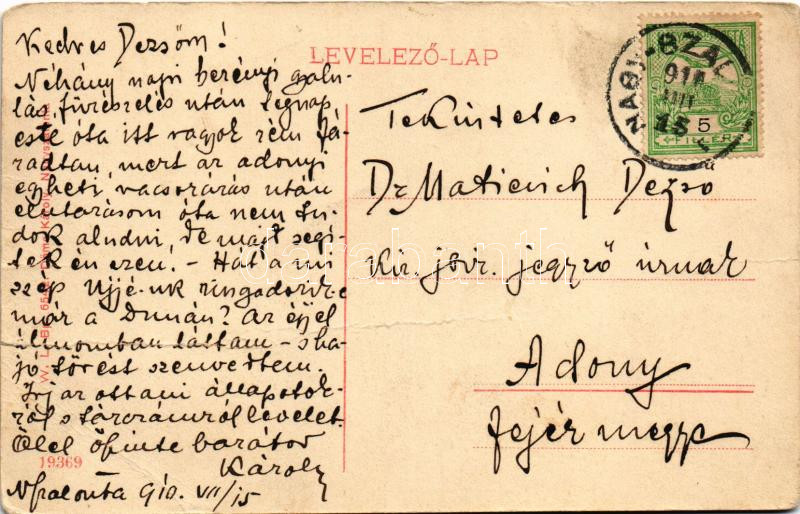 Kedves Dezsőm!
Néhány napi berényi gyalu-
lás, fűrészelés után tegnap
este óta itt vagyok rém fá-
radtan, mert az adonyi
egyheti vacsorázás után
elutazásom óta nem tu-
dok aludni, de majd segí-
tek én ezen! - Hát a mi
szép Ujjé-unk ringadozik-e
már a Dunán? Az éjjel
álmomban láttam - s ha-
jó törést szenvedtem.
Írj az ottani állapotok-
ról s tárczámról levelet.
Ölel őszinte barátod
Károly
Nszalonta 910. VII/15
LEVELEZŐ-LAP
Tekintetes
Dr Matievich Dezső
kir. jbir. jegyző úrnak
Adony
fejér megye
19369
NAGY-SZAL
910
15
5
FILLÉR
darabanth.hu